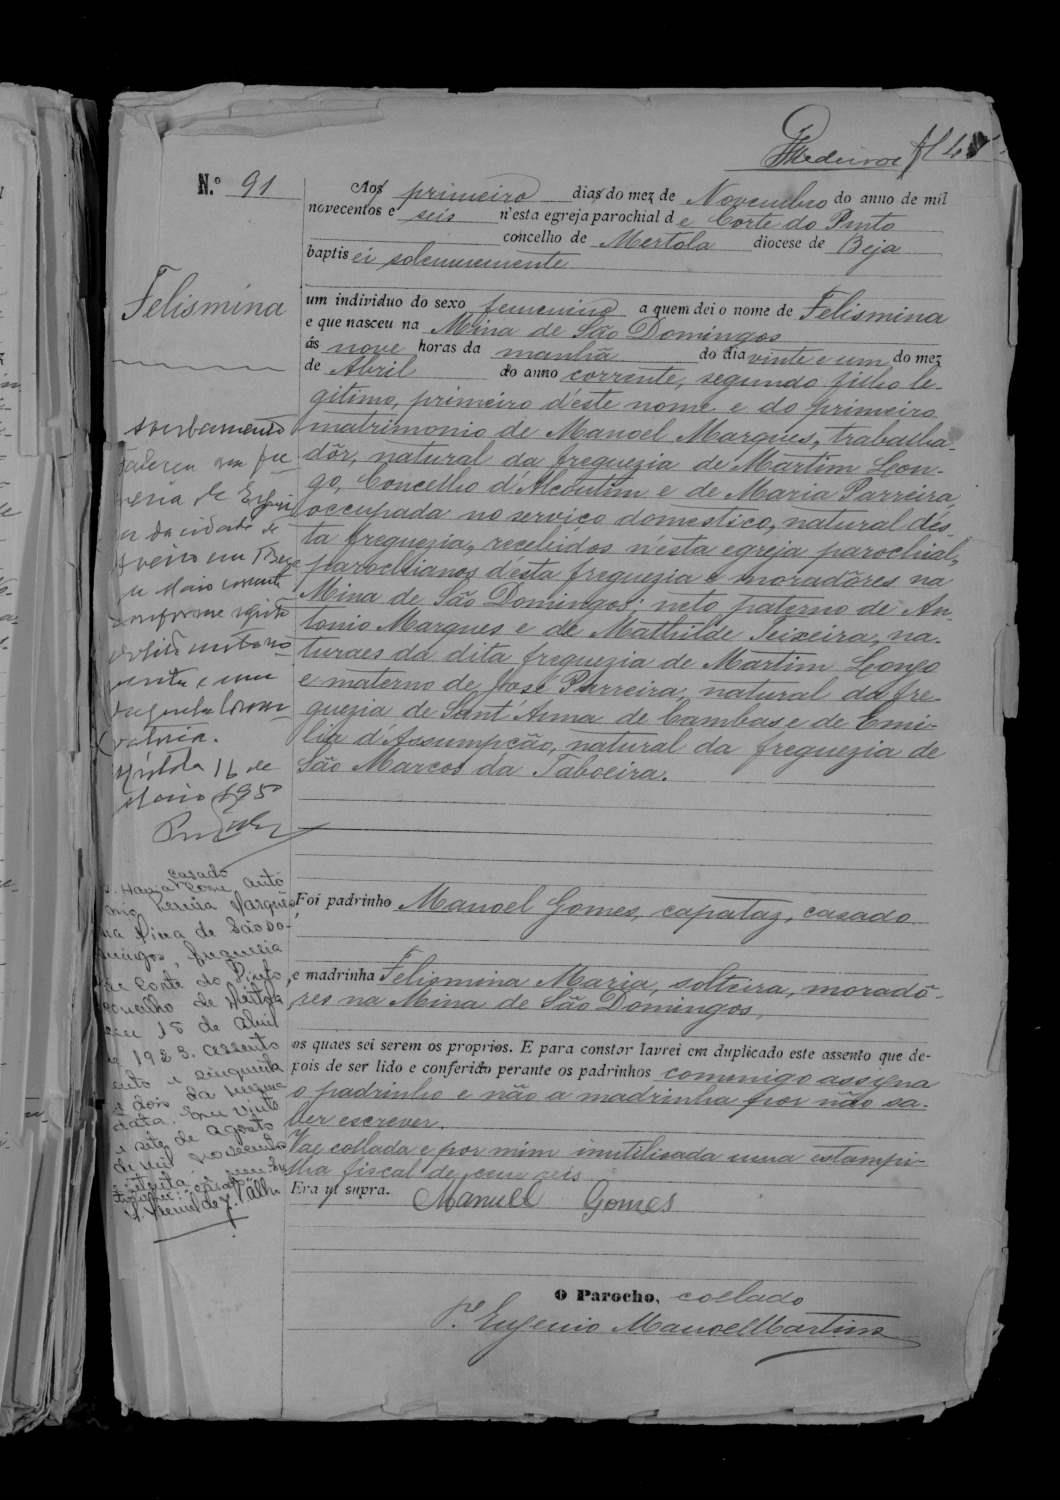 Medeiros
N.º 91
Aos primeiro dias do mez de Novembro do anno de mil
novecentos e seis n'esta egreja parochial de Corte do Pinto
concelho de Mertola diocese de Beja
baptisei solemnemente
Felismina
um individuo do sexo femenino a quem dei o nome de Felismina
e que nasceu na Mina de São Domingos
ás nove horas da manhã do dia vinte e um do mez
de Abril do anno corrente, segundo filho le-
gitimo, primeiro d'este nome e do primeiro
matrimonio de Manoel Marques, trabalha-
dôr, natural da freguezia de Martim Lon-
go, Concelho d'Alcoutim e de Maria Parreira,
occupada no serviço domestico, natural d'es-
ta freguezia, recebidos n'esta egreja parochial,
parochianos d'esta freguezia e moradôres na
Mina de São Domingos; neto paterno de An-
tonio Marques e de Mathilde Teixeira, na-
turaes da dita freguezia de Martim Longo
e materno de José Parreira, natural da fre-
guezia de Sant'Anna de Cambas e de Emi-
lia d'Assumpção, natural da freguezia de
São Marcos da Taboeira.
Averbamento
Faleceu na fre-
da cidade de
Aveiro em
Maio corrente
conforme
e uma
Mértola 16 de
Maio 1950
Foi padrinho Manoel Gomes, capataz, casado
e madrinha Felismina Maria, solteira, moradô-
res na Mina de São Domingos,
os quaes sei serem os proprios. E para constar lavrei em duplicado este assento que de-
pois de ser lido e conferido perante os padrinhos comenigo assigna
o padrinho e não a madrinha por não sa-
ber escrever.
Vae collada e por mim inutilisada uma estampi-
lha fiscal de cem reis
Era ut supra. Manuel Gomes
O Parocho, collado
P.e Eugenio Manoel Martins
casado
com Antó
nio Pereira Marques
na Mina de São Do-
mingos, freguesia
de Corte do Pinto,
concelho de Mértola
em 15 de Abril
de 1923. Assento
cento e cinquenta
e dois da mesma
data. Em vinte
e sete de Agosto
de mil novecentos